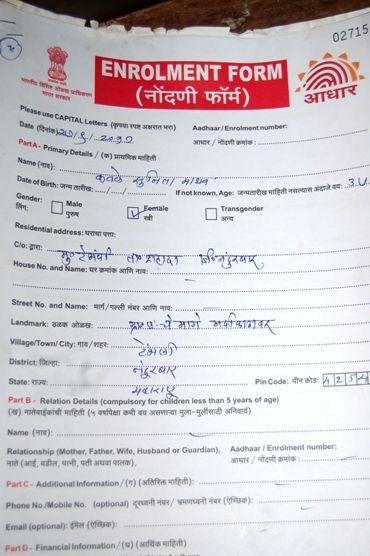 02715
ENROLMENT FORM
(नोंदणी फॉर्म)
भारतीय विशिष्ट ओळख प्राधिकरण
भारत सरकार
आधार
Please use CAPITAL Letters (कृपया स्पष्ट अक्षरात भरा)
Date (दिनांक) Aadhaar/Enrolment number:
आधार / नोंदणी क्रमांक :
Part A - Primary Details / (क) प्राथमिक माहिती
Name (नाव): सुनिता
Date of Birth: जन्म तारीख: ..../..../.... If not known, Age: जन्मतारीख माहिती नसल्यास अंदाजे वय:
Gender: Male Female Transgender
लिंग: पुरुष स्त्री अन्य
Residential address: घराचा पत्ता:
C/o: द्वारा:
House No. and Name: घर क्रमांक आणि नाव: -
Street No. and Name: मार्ग/गल्ली नंबर आणि नाव:
Landmark: ठळक ओळख:
Village/Town/ City: गाव/शहर: टेंभली
District: जिल्हा: नंदुरबार
State: राज्य: महाराष्ट्र Pin Code: पीन कोड: 4254
Part B - Relation Details (compulsory for children less than 5 years of age)
(ख) नातेवाईकांची माहिती (५ वर्षापेक्षा कमी वय असणाऱ्या मुला-मुलींसाठी अनिवार्य)
Name (नाव): -
Relationship (Mother, Father, Wife, Husband or Guardian), Aadhaar / Enrolment number:
नाते (आई, वडील, पत्नी, पती अथवा पालक), आधार / नोंदणी क्रमांक:
Part C - Additional Information / (ग) (अतिरिक्त माहिती)
Phone No./Mobile No. (optional) दूरध्वनी नंबर / भ्रमणध्वनी नंबर (ऐच्छिक):
Email (optional): ईमेल (ऐच्छिक):
Part D - Financial Information / (घ) (आर्थिक माहिती)